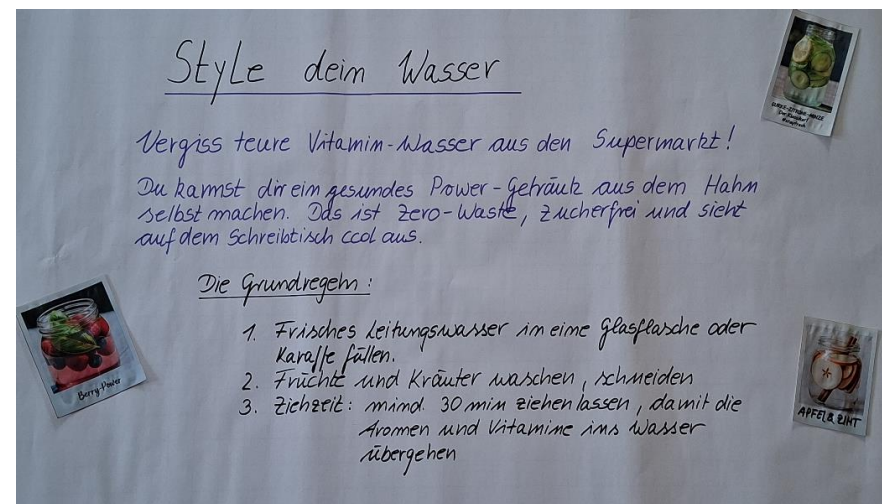 Style dein Wasser
GURKE-ZITRONE-MINZE
Der Klassiker!
Vergiss teure Vitamin-Wasser aus den Supermarkt!
Du kannst dir ein gesundes Power-Getränk aus dem Hahn
selbst machen. Das ist Zero-Waste, Zucherfrei und sieht
auf dem Schreibtisch ccol aus.
Die Grundregeln:
1. Frisches Leitungswasser in eine Glasflasche oder
Karaffe füllen.
2. Früchte und Kräuter waschen, schneiden
3. Ziehzeit: mind. 30 min ziehen lassen, damit die
Aromen und Vitamine ins Wasser
übergehen
Berry-Power
APFEL & ZIMT